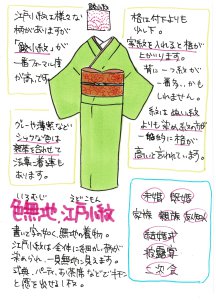 鮫小紋
江戸小紋は様々な
柄がありますが
「鮫小紋」が
一番フォーマル度
が高いです。
グレーや薄紫など
シックな色は
喪服を合せて
法事に着る事も
あります。
格は付下よりも
少し下。
家紋を入れると格が
上がります。
背に一つ紋が
一番多いかも
しれません。
紋は縫い紋
よりも染め紋の方が
一般的に格が
高いと言われています。
いろむじ えどこもん
色無地、江戸小紋
書いて字の如く、無地の着物。
江戸小紋は全体に細かい柄が
染められ、一見無地に見えます。
式典、パーティ、お茶席などでキチン
と感を出せる1枚。
未婚 既婚
家族 親族 友知人
結婚式
披露宴
二次会